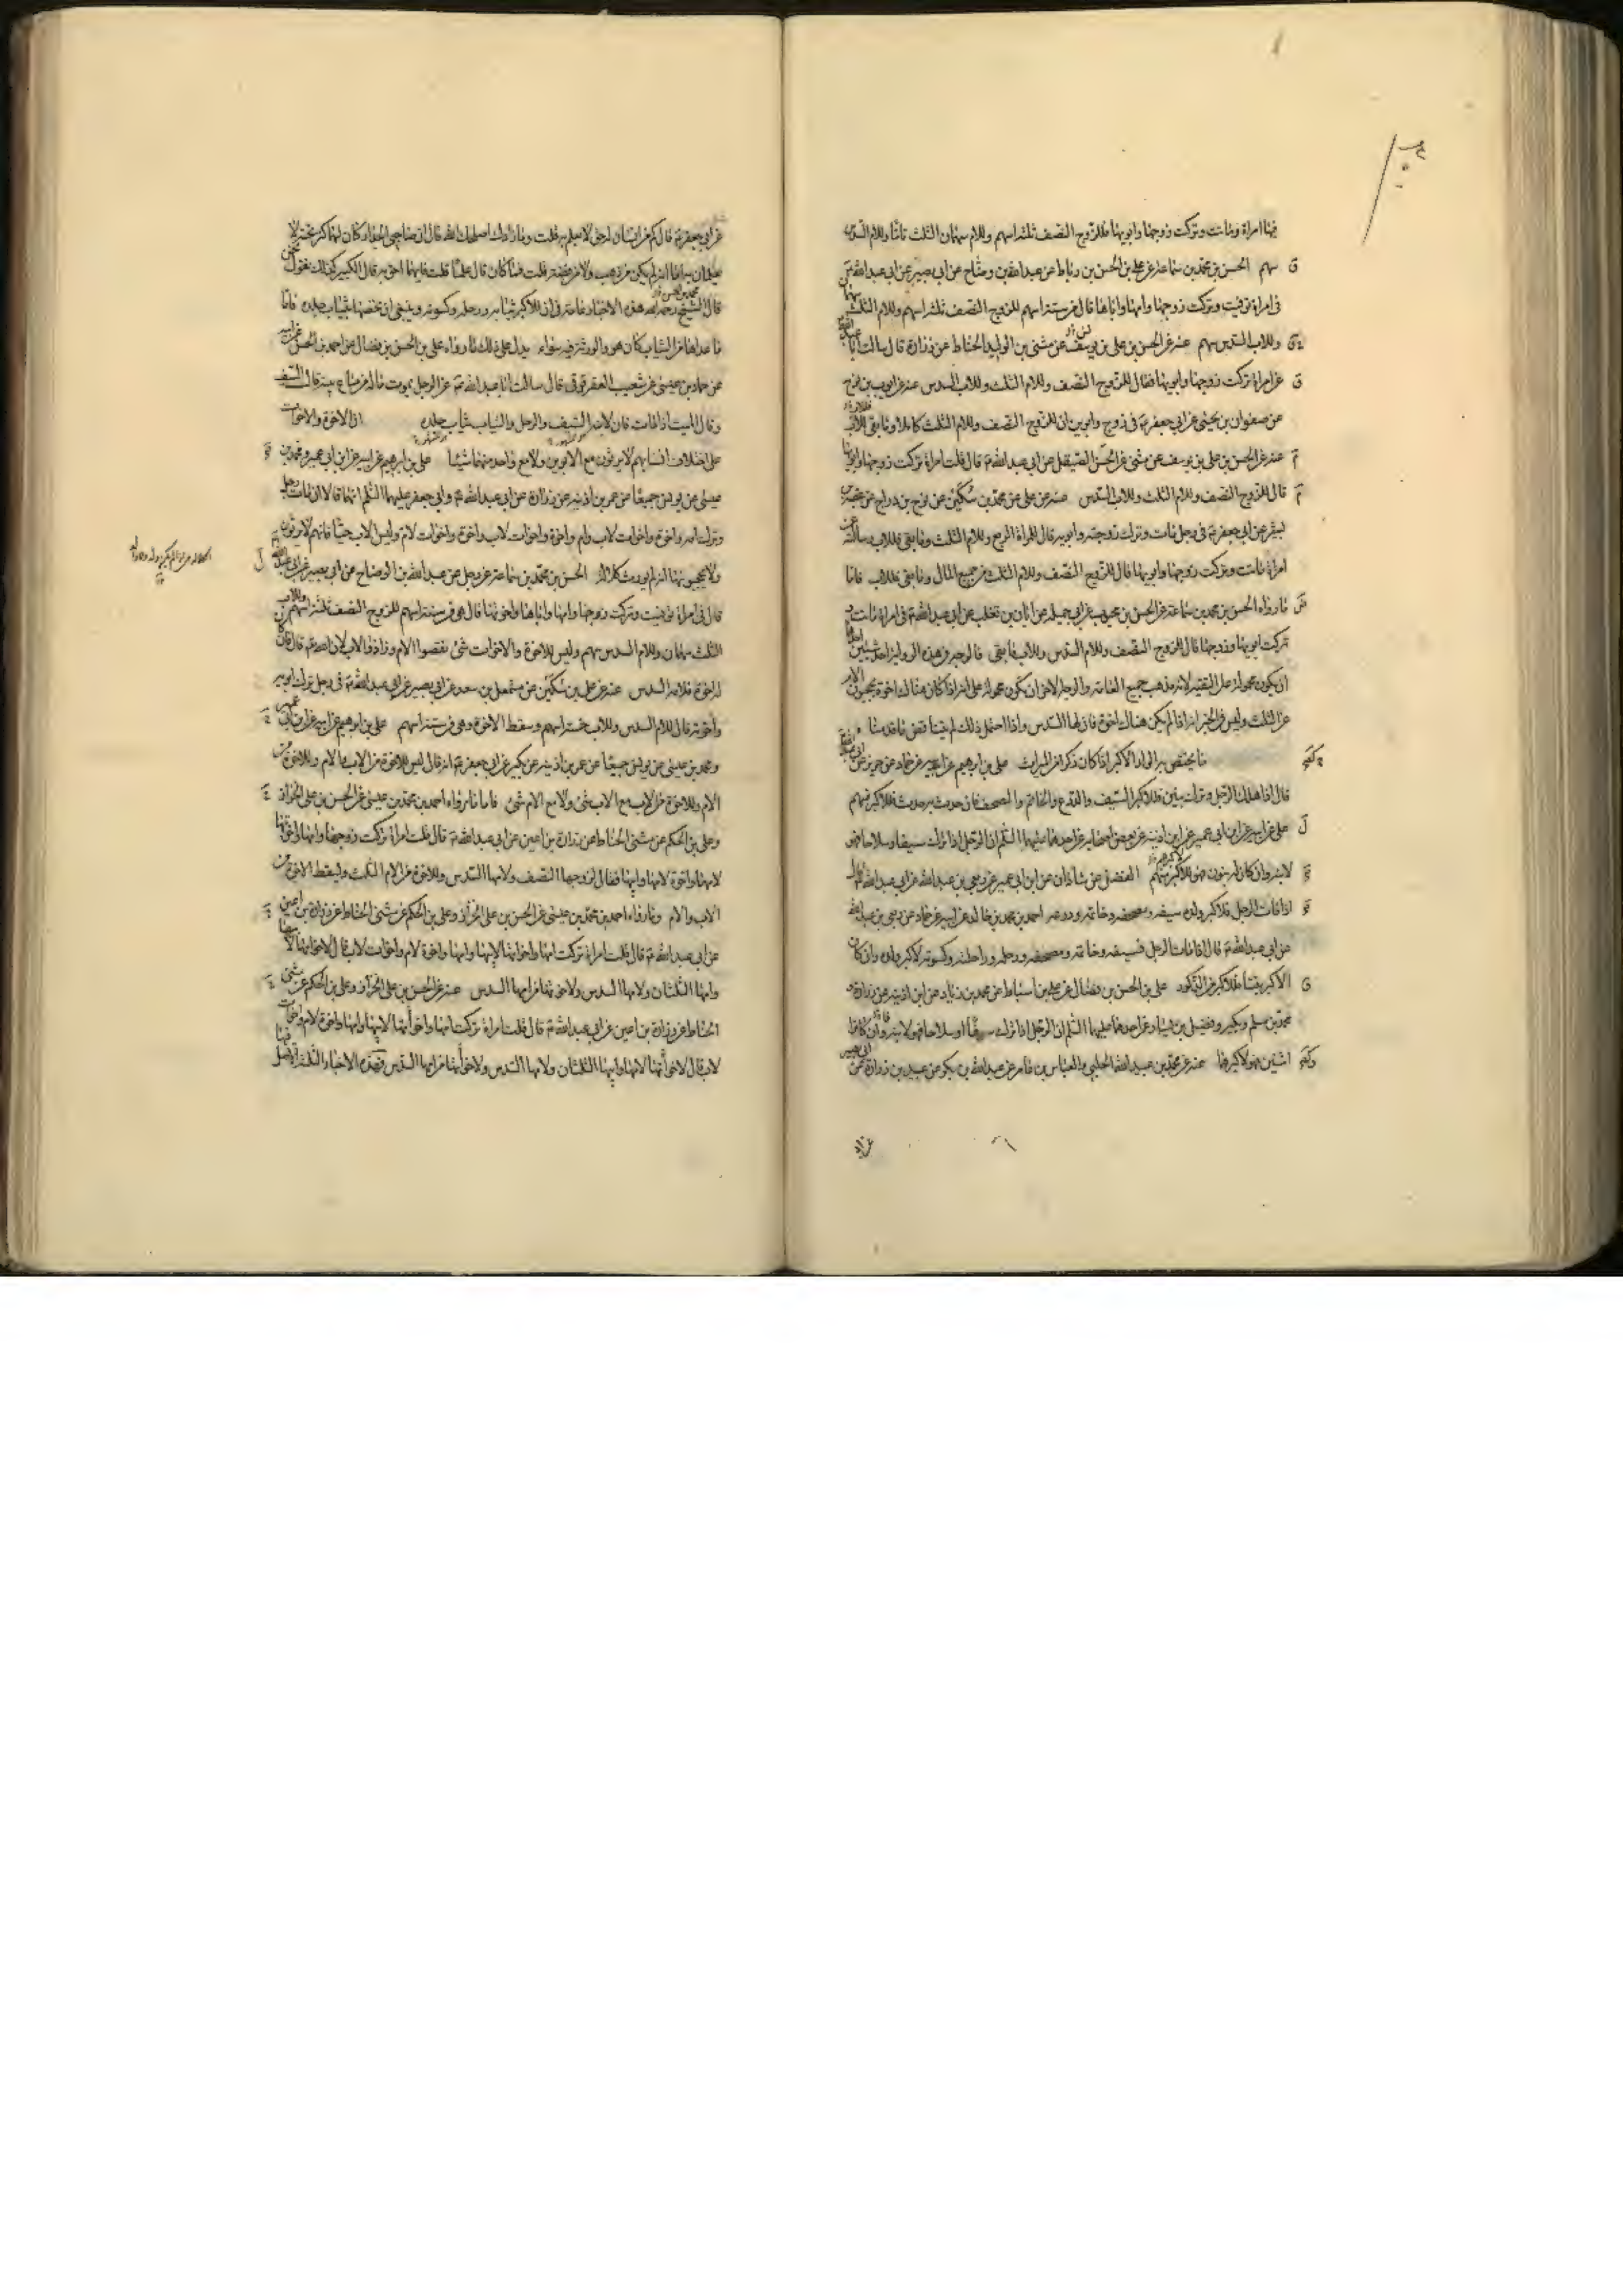 فيها امراة وماتت وتركت زوجها وابويها فللزوج النصف ثلثة اسهم وللام سهمان الثلث تاما وللاب السدس
سهم الحسن بن محمد بن سماعة عن علي بن الحسن بن رباط عن عبد الله بن وضاح عن ابي بصير عن ابي عبد الله ع
في امراة توفيت وتركت زوجها وامها واباها قال هي من ستة اسهم للزوج النصف ثلثة اسهم وللام الثلث سهمان
وللاب السدس سهم عنه عن الحسن بن علي بن يوسف عن مثنى بن الوليد الحناط عن زرارة قال سالت ابا عبد الله
عن امراة تركت زوجها وابويها فقال للزوج النصف وللام الثلث وللاب السدس عنه عن ايوب بن نوح
عن صفوان بن يحيى عن ابي جعفر ع في زوج وابوين ان للزوج النصف وللام الثلث كاملا وما بقي فللاب
عنه عن الحسن بن علي بن يوسف عن مثنى عن الحسن الصيقل عن ابي عبد الله ع قال قلت امراة تركت زوجها وابويها
قال للزوج النصف وللام الثلث وللاب السدس عنه عن علي عن محمد بن سكين عن نوح بن دراج عن عقبة بن
بشير عن ابي جعفر ع في رجل مات وترك زوجته وابويه قال للمراة الربع وللام الثلث وما بقي فللاب وسالته عن
امراة ماتت وتركت زوجها وابويها قال للزوج النصف وللام الثلث من جميع المال وما بقي فللاب فاما
ما رواه الحسن بن محمد بن سماعة عن الحسن بن محبوب عن ابي جميلة عن ابان بن تغلب عن ابي عبد الله ع في امراة ماتت و
تركت ابويها وزوجها قال للزوج النصف وللام السدس وللاب ما بقي فالوجه في هذه الرواية احد شيئين احدهما
ان يكون محمولة على التقية لانه مذهب جميع العامة والوجه الاخر ان يكون محمولة على انه اذا كان هناك اخوة يحجبون الام
عن الثلث وليس في الخبر انه اذا لم يكن هناك اخوة فان لها السدس واذا احتمل ذلك لم يناقض ما قدمنا
ما يختص به الولد الاكبر اذا كان ذكرا من الميراث علي بن ابراهيم عن ابيه عن حماد عن حريز عن ابي عبد الله
قال اذا هلك الرجل وترك بنين فللاكبر السيف والدرع والخاتم والمصحف فان حدث به حدث فللاكبر منهم
علي عن ابيه عن ابن ابي عمير عن ابن اذينة عن بعض اصحابه عن احدهما عليهما السلم ان الرجل اذا ترك سيفا وسلاحا فهو
لابنه وان كان له بنون فهو لاكبرهم الفضل بن شاذان عن ابن ابي عمير عن ربعي بن عبد الله عن ابي عبد الله ع قال
اذا مات الرجل فلاكبر ولده سيفه ومصحفه وخاتمه ودرعه احمد بن محمد بن خالد عن ابيه عن حماد عن ربعي بن عبد الله
عن ابي عبد الله ع قال اذا مات الرجل فسيفه وخاتمه ومصحفه ورحله وراحلته وكسوته لاكبر ولده وان كان
الاكبر بنتا فللاكبر من الذكور علي بن الحسن بن فضال عن علي بن اسباط عن محمد بن زياد عن ابن اذينة عن زرارة و
محمد بن مسلم وبكير وفضيل بن يسار عن احدهما عليهما السلم ان الرجل اذا ترك سيفا او سلاحا فهو لابنه وان كانوا
اثنين فهو لاكبرهما عنه عن محمد بن عبيد الله الحلبي والعباس بن عامر عن عبد الله بن بكير عن عبيد بن زرارة عن ابي بصير
عن ابي جعفر ع قال كم من انسان له حق لا يعلم به قلت وما ذاك اصلحك الله قال ان صاحبي الجدار كان لهما كنز تحته لا
يعلمان به اما انه لم يكن من ذهب ولا من فضة قلت فما كان قال علما قلت فايهما احق به قال الكبير كذلك نقول نحن
قال الشيخ رحمه الله هذه الاخبار عامة في ان للاكبر ثيابه ورحله وكسوته وينبغي ان نخصها بثياب جلده فاما
ما عداها من الثياب كان هو والورثة فيه سواء يدل على ذلك ما رواه علي بن الحسن بن فضال عن احمد بن الحسن عن ابيه
عن حماد بن عيسى عن شعيب العقرقوفي قال سالت ابا عبد الله ع عن الرجل يموت ماله من متاع بيته قال السيف
وقال الميت اذا مات فان لابنه السيف والرحل والثياب ثياب جلده ان الاخوة والاخوات
على اختلاف انسابهم لا يرثون مع الابوين ولا مع واحد منهما شيئا علي بن ابراهيم عن ابيه عن ابن ابي عمير ومحمد بن
عيسى عن يونس جميعا عن عمر بن اذينة عن زرارة عن ابي عبد الله ع وابي جعفر عليهما السلم انهما قالا ان مات رجل
وترك امه واخوة واخوات لاب وام واخوة واخوات لاب واخوة واخوات لام وليس الاب حيا فانهم لا يرثون
ولا يحجبونها لانه لم يورث كلالة الحسن بن محمد بن سماعة عن رجل عن عبد الله بن الوضاح عن ابي بصير عن ابي عبد الله
قال في امراة توفيت وتركت زوجها وامها واباها واخوتها قال هي من ستة اسهم للزوج النصف ثلثة اسهم وللاب
الثلث سهمان وللام السدس سهم وليس للاخوة والاخوات شئ نقصوا الام وزادوا الاب لان الله تع قال فان كان
له اخوة فلامه السدس عنه عن علي بن سكين عن مشمعل بن سعد عن ابي بصير عن ابي عبد الله ع في رجل ترك ابويه
واخوته قال للام السدس وللاب خمسة اسهم وسقط الاخوة وهي من ستة اسهم علي بن ابراهيم عن ابيه عن ابن ابي عمير
ومحمد بن عيسى عن يونس جميعا عن عمر بن اذينة عن بكير عن ابي جعفر ع انه قال ليس للاخوة من الاب والام ولا للاخوة من
الام ولا للاخوة من الاب مع الاب شئ ولا مع الام شئ فاما ما رواه احمد بن محمد بن عيسى عن الحسن بن علي الخزاز
وعلي بن الحكم عن مثنى الحناط عن زرارة بن اعين عن ابي عبد الله ع قال قلت امراة تركت زوجها وامها واخوتها
لامها واخوة لامها وابيها فقال لزوجها النصف ولامها السدس وللاخوة من الام الثلث ويسقط الاخوة من
الاب والام وما رواه احمد بن محمد بن عيسى عن الحسن بن علي الخزاز وعلي بن الحكم عن مثنى الحناط عن زرارة بن اعين
عن ابي عبد الله ع قال قلت امراة تركت امها واخواتها لابيها وامها واخوة لام واخوات لاب قال لاخواتها لابيها
وامها الثلثان ولامها السدس ولاخوتها من امها السدس عنه عن الحسن بن علي الخزاز وعلي بن الحكم عن مثنى
الحناط عن زرارة بن اعين عن ابي عبد الله ع قال قلت امراة تركت امها واخواتها لابيها وامها واخوة لام واخوات
لاب قال لاخواتها لامها وابيها الثلثان ولامها السدس ولاخوتها من امها السدس فهذه الاخبار الثلثة الاصل فيها